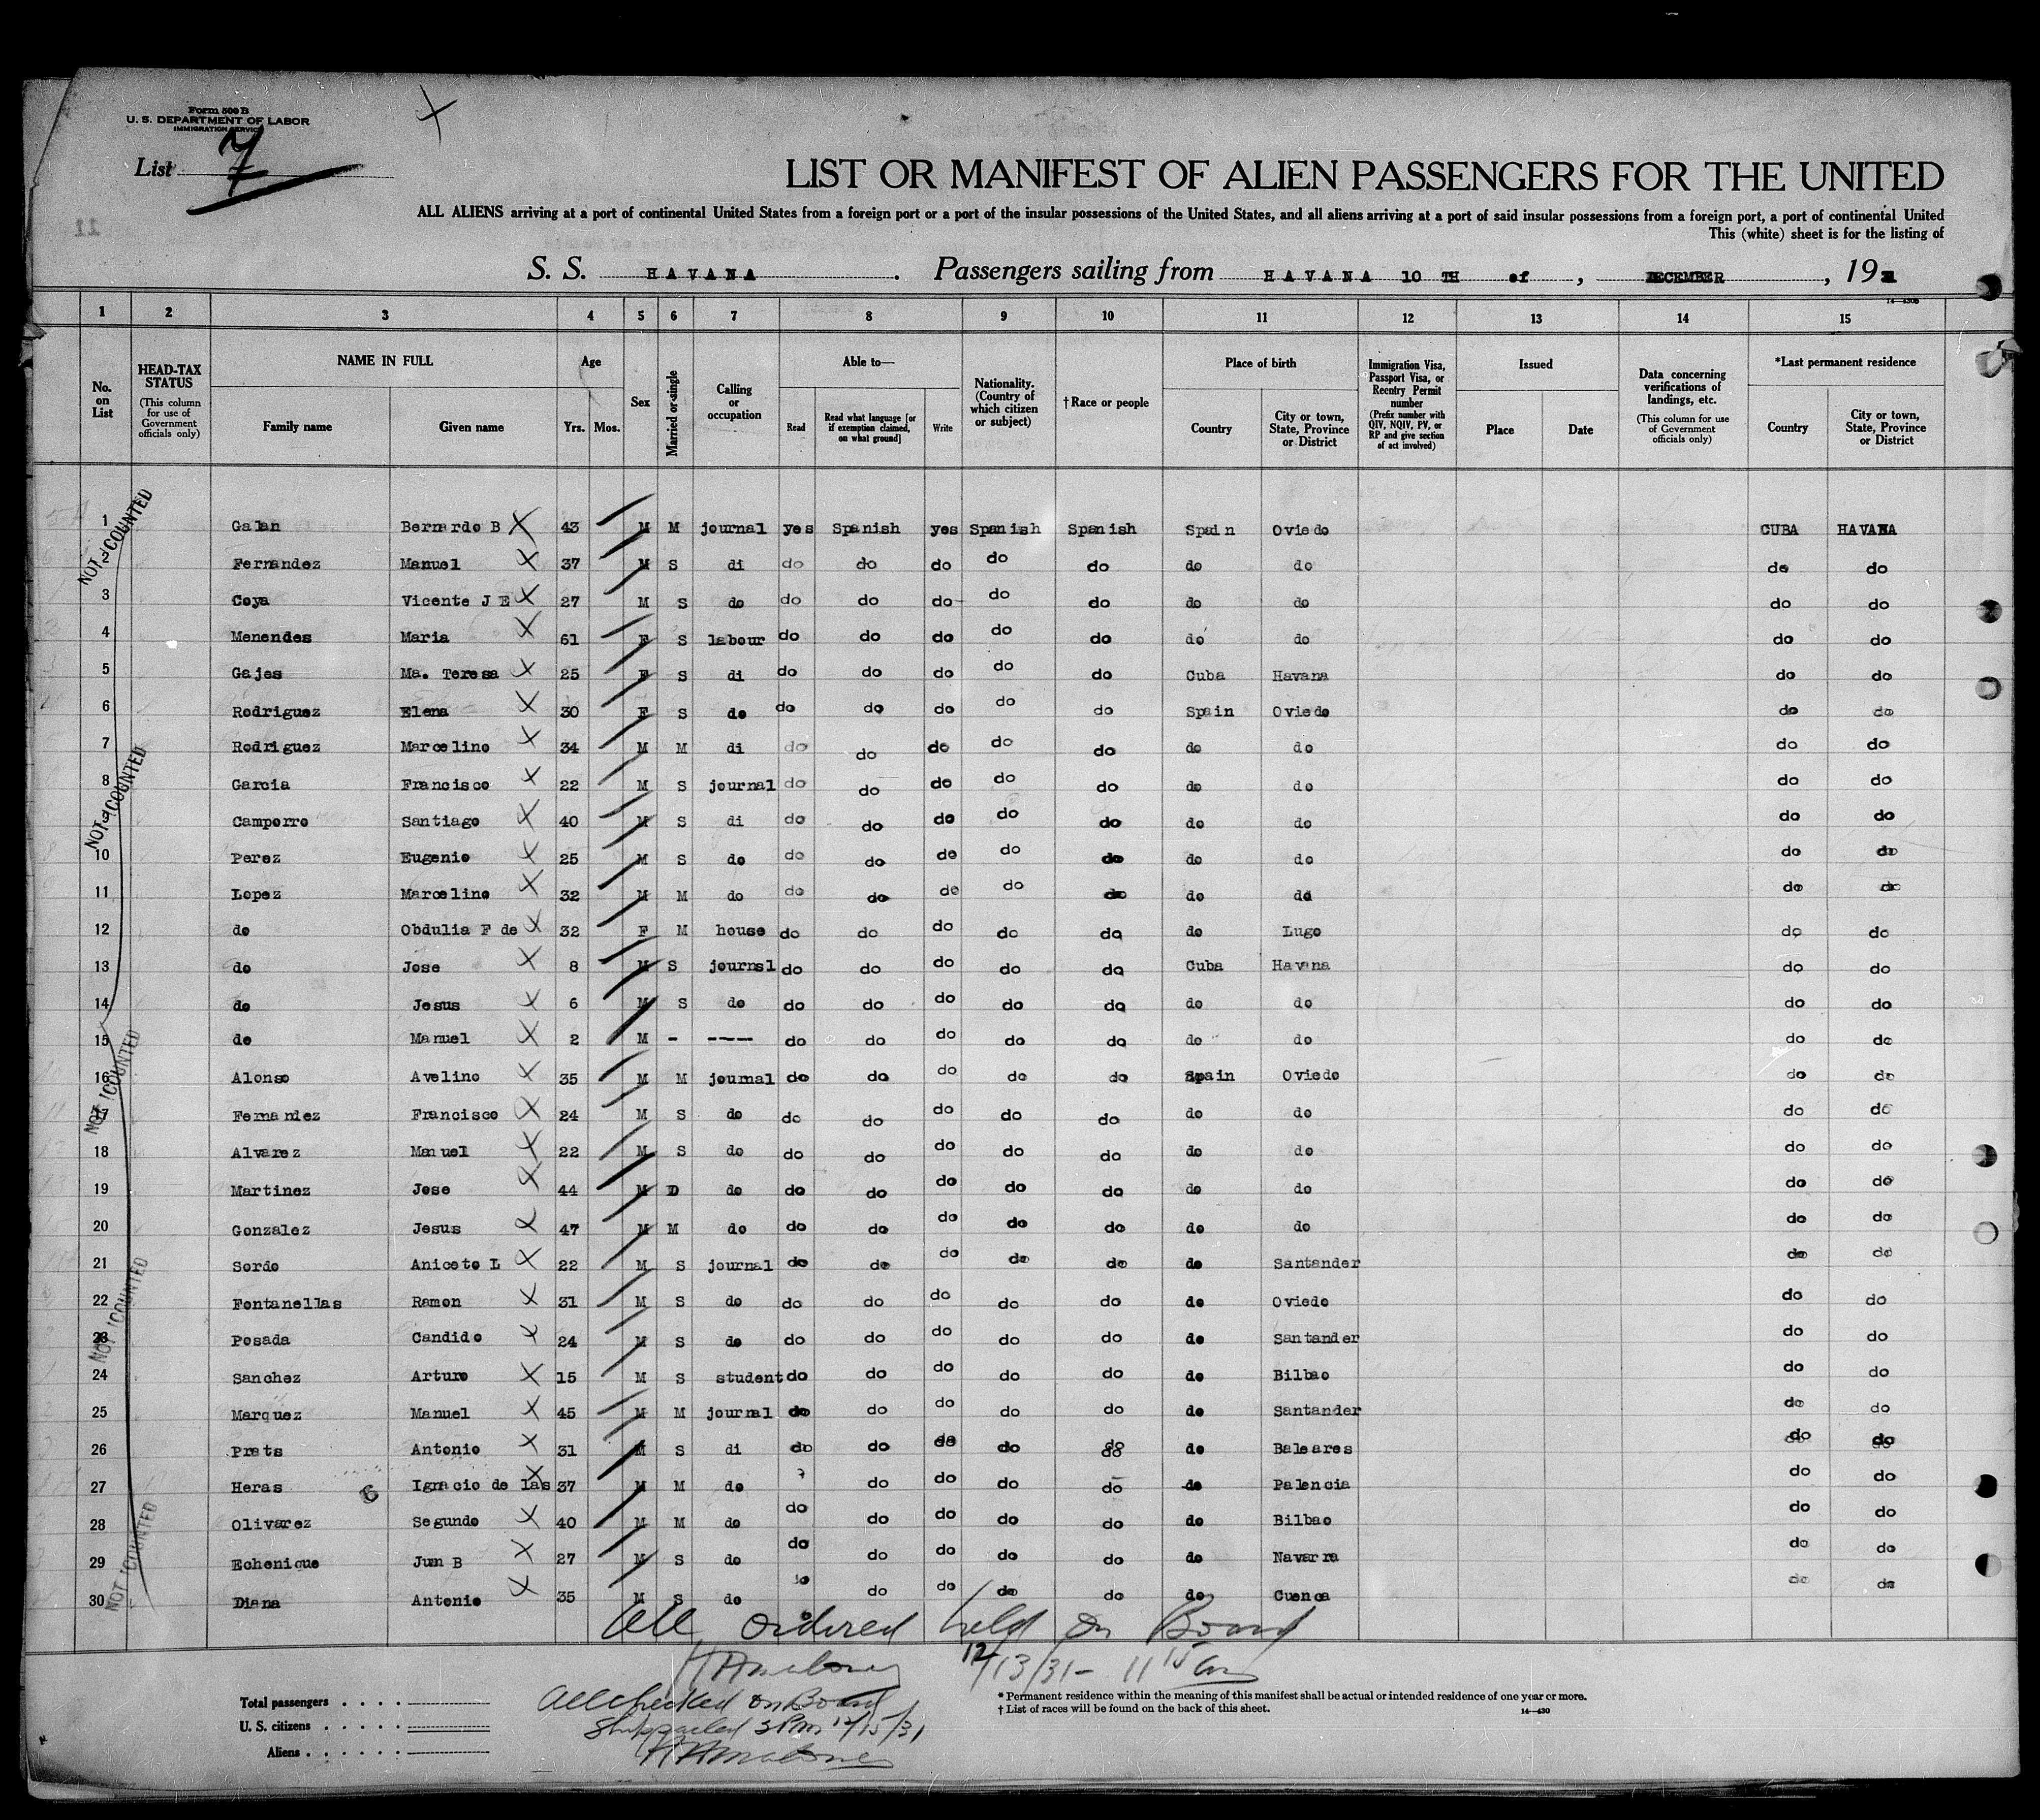 Form 500 B
U. S. DEPARTMENT OF LABOR
IMMIGRATION SERVICE
List 7
LIST OR MANIFEST OF ALIEN PASSENGERS FOR THE UNITED
ALL ALIENS arriving at a port of continental United States from a foreign port or a port of the insular possessions of the United States, and all aliens arriving at a port of said insular possessions from a foreign port, a port of continental United
This (white) sheet is for the listing of
S. S. HAVANA . Passengers sailing from HAVANA 10 TH of , DECEMBER , 1931
14—430B
1 2 3 4 5 6 7 8 9 10 11 12 13 14 15
No. on List
HEAD-TAX STATUS (This column for use of Government officials only)
NAME IN FULL
Family name Given name
Age
Yrs. Mos.
Sex
Married or single
Calling or occupation
Able to—
Read
Read what language [or if exemption claimed, on what ground]
Write
Nationality. (Country of which citizen or subject)
† Race or people
Place of birth
Country
City or town, State, Province or District
Immigration Visa, Passport Visa, or Reentry Permit number (Prefix number with QIV, NQIV, PV, or RP and give section of act involved)
Issued
Place Date
Data concerning verifications of landings, etc. (This column for use of Government officials only)
*Last permanent residence
Country
City or town, State, Province or District
1 Galan Bernardo B 43 M M journal yes Spanish yes Spanish Spanish Spain Oviedo CUBA HAVANA
Fernandez Manuel 37 M S di do do do do do do do do do
3 Coya Vicente J E 27 M S do do do do do do do do do do
4 Menendes Maria 61 F S labour do do do do do do do do do
5 Gajes Ma. Teresa 25 F S di do do do do do Cuba Havana do do
6 Rodriguez Elena 30 F S do do do do do do Spain Oviedo do do
7 Rodriguez Marcelino 34 M M di do do do do do do do do do
8 Garcia Francisco 22 M S journal do do do do do do do do do
9 Camporro Santiago 40 M S di do do do do do do do do do
10 Perez Eugenio 25 M S do do do do do do do do do do
11 Lopez Marcelino 32 M M do do do do do do do do do do
12 do Obdulia F de 32 F M house do do do do do do Lugo do do
13 do Jose 8 M S journsl do do do do do Cuba Havana do do
14 do Jesus 6 M S do do do do do do do do do do
15 do Manuel 2 M - ---- do do do do do do do do do
16 Alonso Avelino 35 M M journal do do do do do Spain Oviedo do do
17 Fernandez Francisco 24 M S do do do do do do do do do do
18 Alvarez Manuel 22 M S do do do do do do do do do do
19 Martinez Jose 44 M D do do do do do do do do do do
20 Gonzalez Jesus 47 M M do do do do do do do do do do
21 Sordo Aniceto L 22 M S journal do do do do do do Santander do do
22 Fontanellas Ramon 31 M S do do do do do do do Oviedo do do
23 Posada Candido 24 M S do do do do do do do Santander do do
24 Sanchez Arturo 15 M S student do do do do do do Bilbao do do
25 Marquez Manuel 45 M M journal do do do do do do Santander do do
26 Prats Antonio 31 M S di do do do do do do Baleares do do
27 Heras Ignacio de las 37 M M do do do do do do Palencia do do
28 Olivarez Segundo 40 M M do do do do do do do Bilbao do do
29 Echenique Juan B 27 M S do do do do do do do Navarra do do
30 Diana Antonio 35 M S do do do do do do do Cuenca do do
NOT COUNTED
NOT COUNTED
NOT COUNTED
NOT COUNTED
NOT COUNTED
All ordered held on Board
12/13/31- 11 15 am
All checked on Board
Ship sailed 3 Pm 12/15/31
Total passengers . . . .
U. S. citizens . . . . .
Aliens . . . . . .
* Permanent residence within the meaning of this manifest shall be actual or intended residence of one year or more.
† List of races will be found on the back of this sheet.
14—430